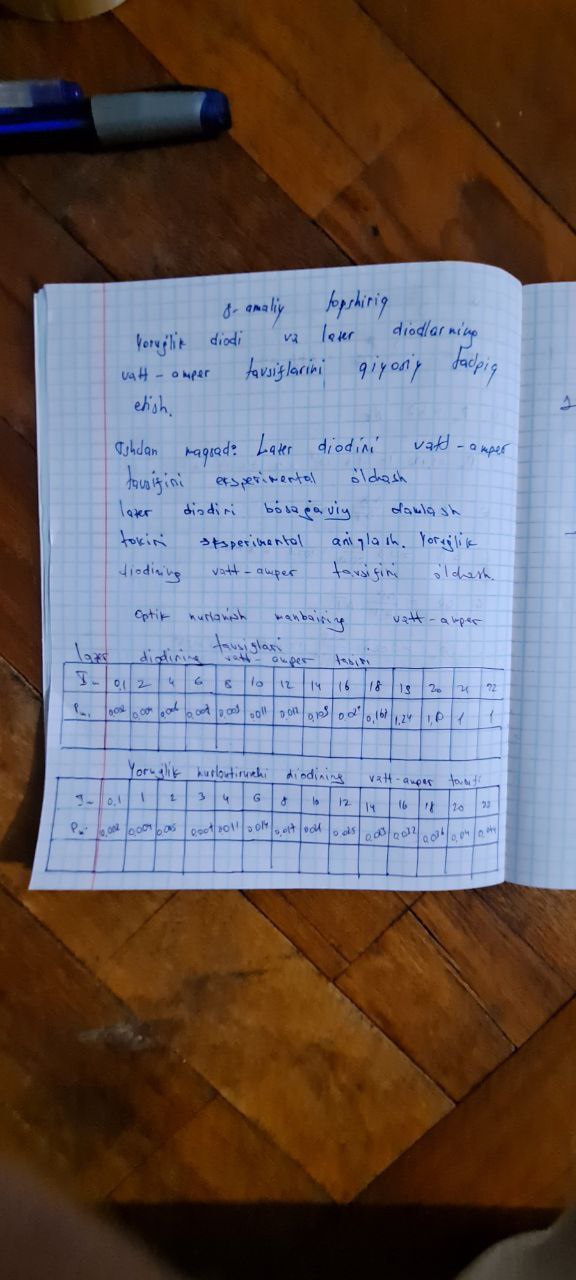 8-amaliy topshiriq
Yorug'lik diodi va lazer diodlarning
vatt-amper tavsiflarini qiyosiy tadqiq
etish.
Ishdan maqsad: Lazer diodini vatt-amper
tavsifini eksperimental ölchash
lazer diodini bösağaviy
tokini eksperimental aniqlash. Yorug'lik
diodining vatt-amper tavsifini ölchash.
Optik nurlanish manbaining vatt-amper
tavsiflari
lazer diodining vatt-amper
I- 0,1 2 4 6 8 10 12 14 16 18 19 20 21 22
0,002 0,004 0,006 0,009 0,011 1,24 1 1
Yorug'lik diodining vatt-amper
I- 0,1 1 2 3 4 6 8 10 12 14 16 18 20 22
0,002 0,004 0,005 0,007 0,011 0,014 0,017 0,021 0,025 0,032 0,036 0,04